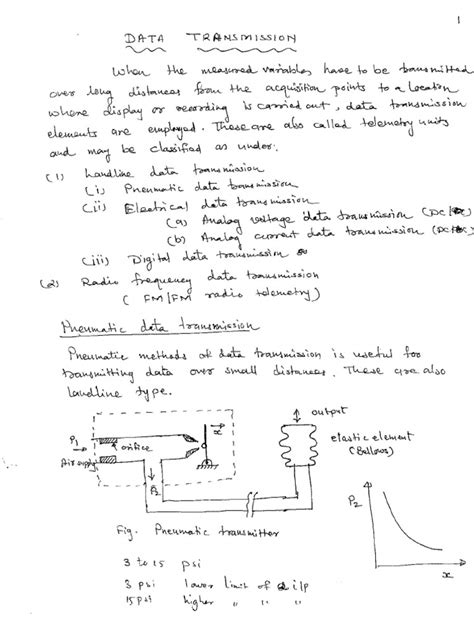 1
DATA TRANSMISSION
When the measured variables have to be transmitted
over long distances from the acquisition points to a location
where display or recording is carried out, data transmission
elements are employed. These are also called telemetry units
and may be classified as under:
(1) Landline data transmission
(i) Pneumatic data transmission
(ii) Electrical data transmission
(a) Analog voltage data transmission (DC/
(b) Analog current data transmission (DC/
(iii) Digital data transmission
(2) Radio frequency data transmission
(FM/FM radio telemetry)
Pneumatic data transmission
Pneumatic methods of data transmission is useful for
transmitting data over small distances. These are also
landline type.
output
x
P1
orifice
elastic element
(Bellows)
Air supply
P2
P2
x
Fig. Pneumatic transmitter
3 to 15 psi
3 psi lower limit of i/p
15 psi higher " " "